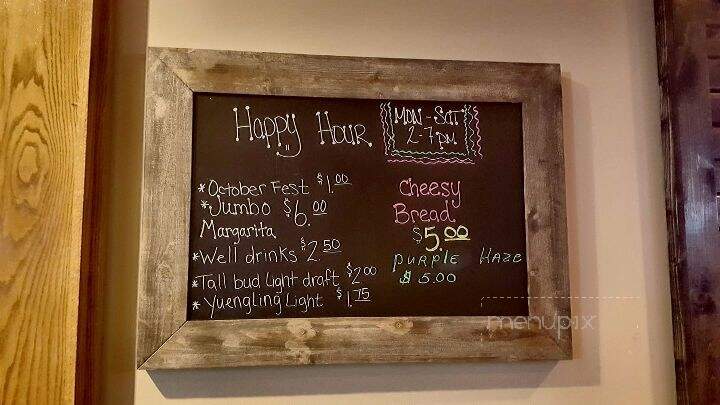 Happy Hour
MON - SAT
2-7pm
*October Fest $1.00
*Jumbo $6.00
Margarita
*Well drinks $2.50
*Tall bud light draft $2.00
*Yuengling Light $1.75
Cheesy
Bread
$5.00
PURPLE HAZE
$5.00
menupix